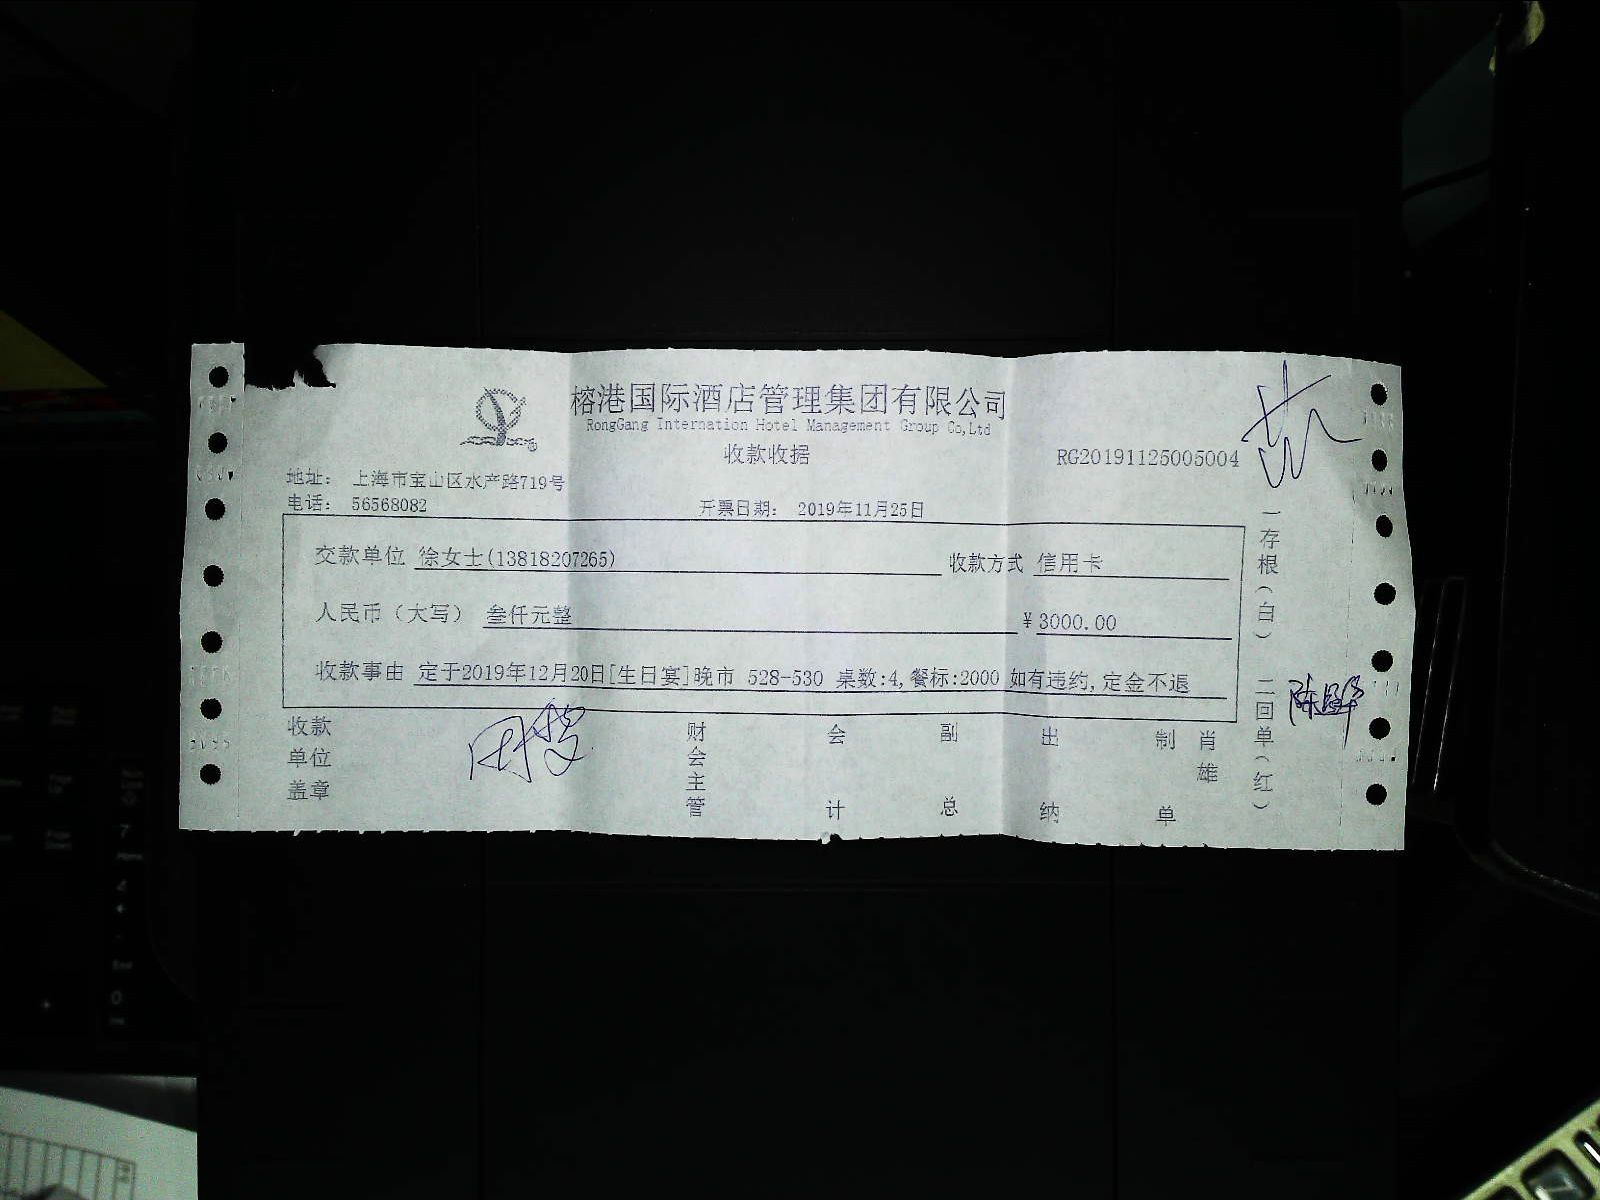 榕港国际酒店管理集团有限公司
RongGang Internation Hotel Management Group Co,Ltd
收款收据
RG20191125005004
地址： 上海市宝山区水产路719号
电话： 56568082
开票日期： 2019年11月25日
交款单位 徐女士(13818207265) 收款方式 信用卡
人民币（大写） 叁仟元整 ¥3000.00
收款事由 定于2019年12月20日[生日宴]晚市 528-530 桌数:4,餐标:2000 如有违约,定金不退
收款单位盖章
财会主管
会计
副总
出纳
制单
肖雄
一存根(白)
二回单(红)
7
Home
4
End
0
Ins